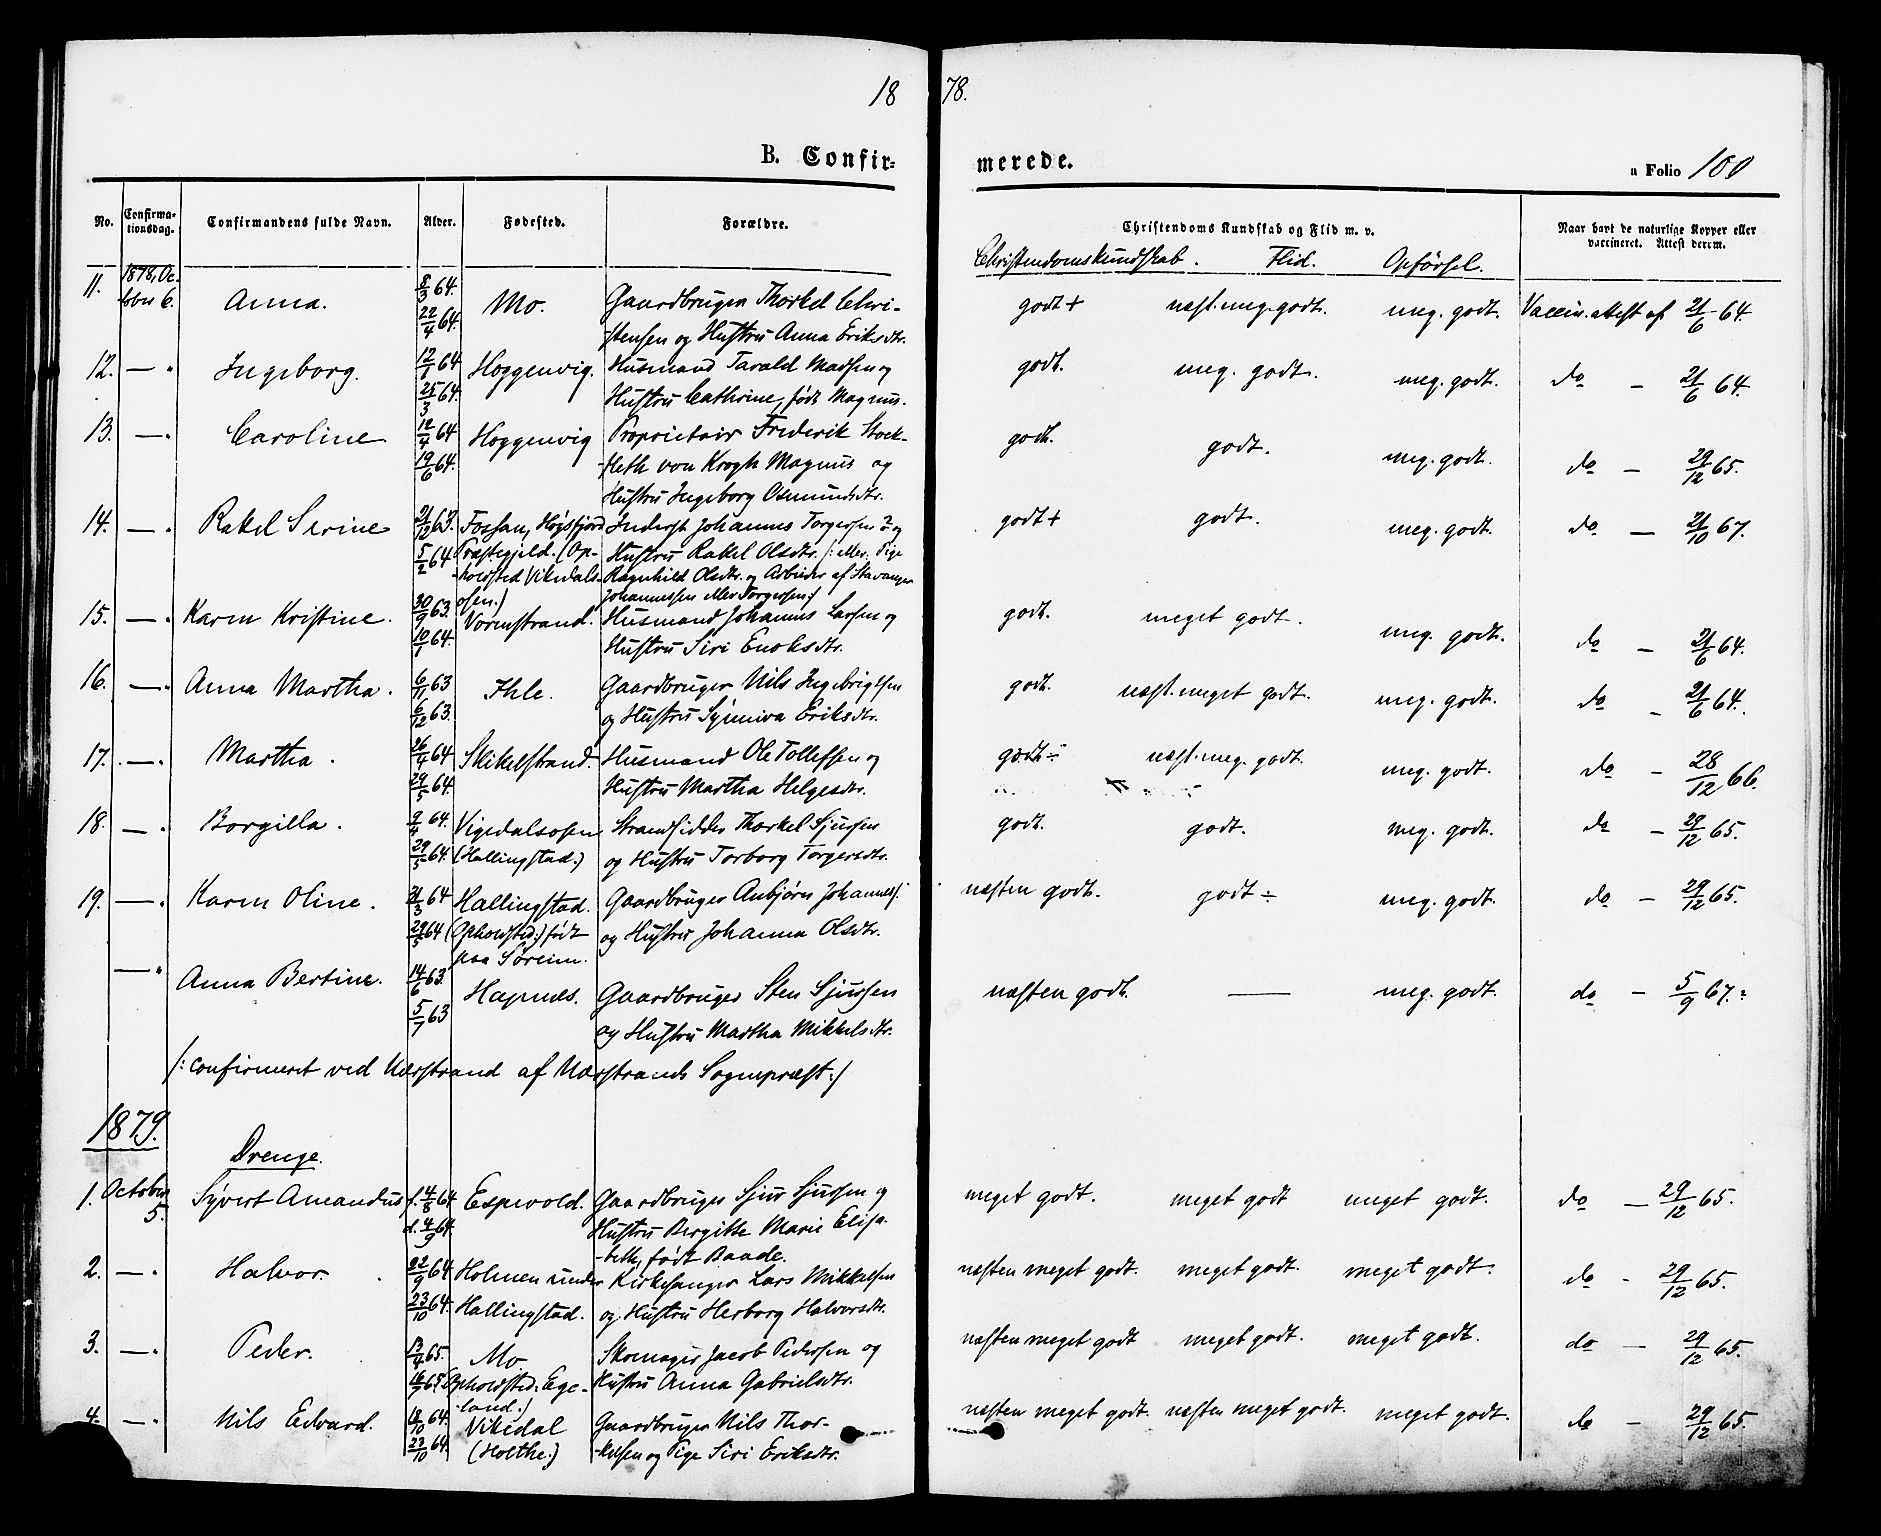 18 78.
B. Confir= merede.
a Folio 100
No. Confirma-tionsdag. Confirmandens fulde Navn. Alder. Fødested. Forældre. Christendoms Kundskab og Flid m. v. Naar havt de naturlige Kopper eller vaccineret. Attest derom.
Christendomskundskab. Flid. Opførsel.
11. 1878, Oc- 8/3 64. Gaardbruger Thorkel Chri-
tober 6. Anna. 22/4 64. Mo. stensen og Hustru Anna Eriksdtr. godt + næst. meg. godt. meg. godt. Vaccin. attest af 21/6 64.
12. — " Ingeborg. 12/1 64 Hoggenvig. Husmand Tarald Madsen og godt. meg. godt. meg. godt. do — 21/6 64.
25/3 64. Hustru Cathrine, født Magnus.
13. — " Caroline 12/4 64 Hoggenvig Proprietair Frederik Stock- godt. godt. meg. godt. do — 29/12 65.
19/6 64. fleth von Krogh Magnus og
Hustru Ingeborg Osmundsdtr.
14. — " Rakel Serine 21/12 63. Fossan, Høgsfjord Inderst Johannes Torgersen? og godt + godt. meg. godt. do — 21/10 67.
5/2 64 Præstegjeld. (Op- Hustru Rakel Olsdtr. /: eller Pige
-holdsted Vikedals- Ragnhild Olsdtr. og Arbeider af Stavanger
osen.) Johannessen eller Torgersen :/
15. — " Karen Kristine. 30/9 63. Vormstrand. Husmand Johannes Larsen og godt. meget godt. meg. godt. do — 21/6 64.
10/1 64. Hustru Siri Enoksdtr.
16. — " Anna Martha. 6/11 63 Ihle. Gaardbruger Nils Ingebrigtsen godt. næst. meget godt. meg. godt. do — 21/6 64.
6/12 63. og Hustru Synneva Eriksdtr.
17. — " Martha. 26/4 64 Skikelstrand. Husmand Ole Tollefsen og godt ÷ næst. meg. godt. meg. godt. do — 28/12 66.
29/5 64. Hustru Martha Helgesdtr.
18. — " Borgilla. 9/4 64. Vigedalsosen Strandsidder Thorkel Sjursen godt. godt. meg. godt. do — 29/12 65.
29/5 64. (Hallingstad.) og Hustru Torborg Torgersdtr.
19. — " Karen Oline. 21/3 64 Hallingstad. Gaardbruger Anbjørn Johannes. næsten godt. godt ÷ meg. godt. do — 29/12 65.
29/5 64 (Opholdsted:) født og Hustru Johanna Olsdtr.
paa Søreim.
— " Anna Bertine. 14/6 63. Hapnes. Gaardbruger Sten Sjursen næsten godt. — meg. godt. do — 5/9 67.
5/7 63 og Hustru Martha Mikkelsdtr.
/: confirmeret ved Nærstrand af Nærstrands Sognepræst :/
1879.
Drenge.
1. October Syvert Amandus f. 4/8 64 Espevold. Gaardbruger Sjur Sjursen og meget godt. meget godt meget godt. do — 29/12 65.
5. d. 4/9 64. Hustru Bergitte Marie Elisa-
-beth, født Baade.
2. — " Halvor. 22/9 64 Holmen under Kirkesanger Lars Mikkelsen næsten meget godt. meget godt. meget godt. do - 29/12 65.
23/10 64. Hallingstad. og Hustru Herborg Halvorsdtr.
3. — " Peder. 13/4 65. Mo Skomager Jacob Pedersen og næsten meget godt meget godt. meget godt. do — 29/12 65.
16/7 65 (Opholdsted: Ege- Hustru Anna Gabrielsdtr.
-land.)
4. — " Nils Edvard. 18/10 64. Vikedal Gaardbruger Nils Thor- næsten meget godt. næsten meget godt. meget godt. do — 29/12 65.
23/10 64. (Holthe.) -kelsen og Pige Siri Eriksdtr.